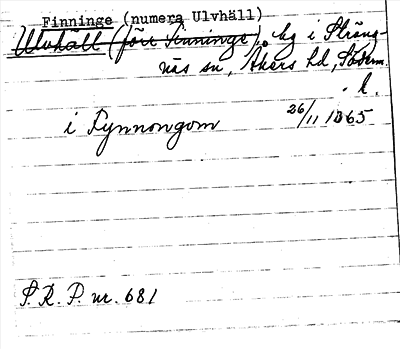 Finninge (numera Ulvhäll)
Ulvhäll (förr Finninge), bg i Sträng-
näs sn, Åkers hd, Söderm.
l.
i Fynnongom 26/11 1365
S. R. P. nr. 681